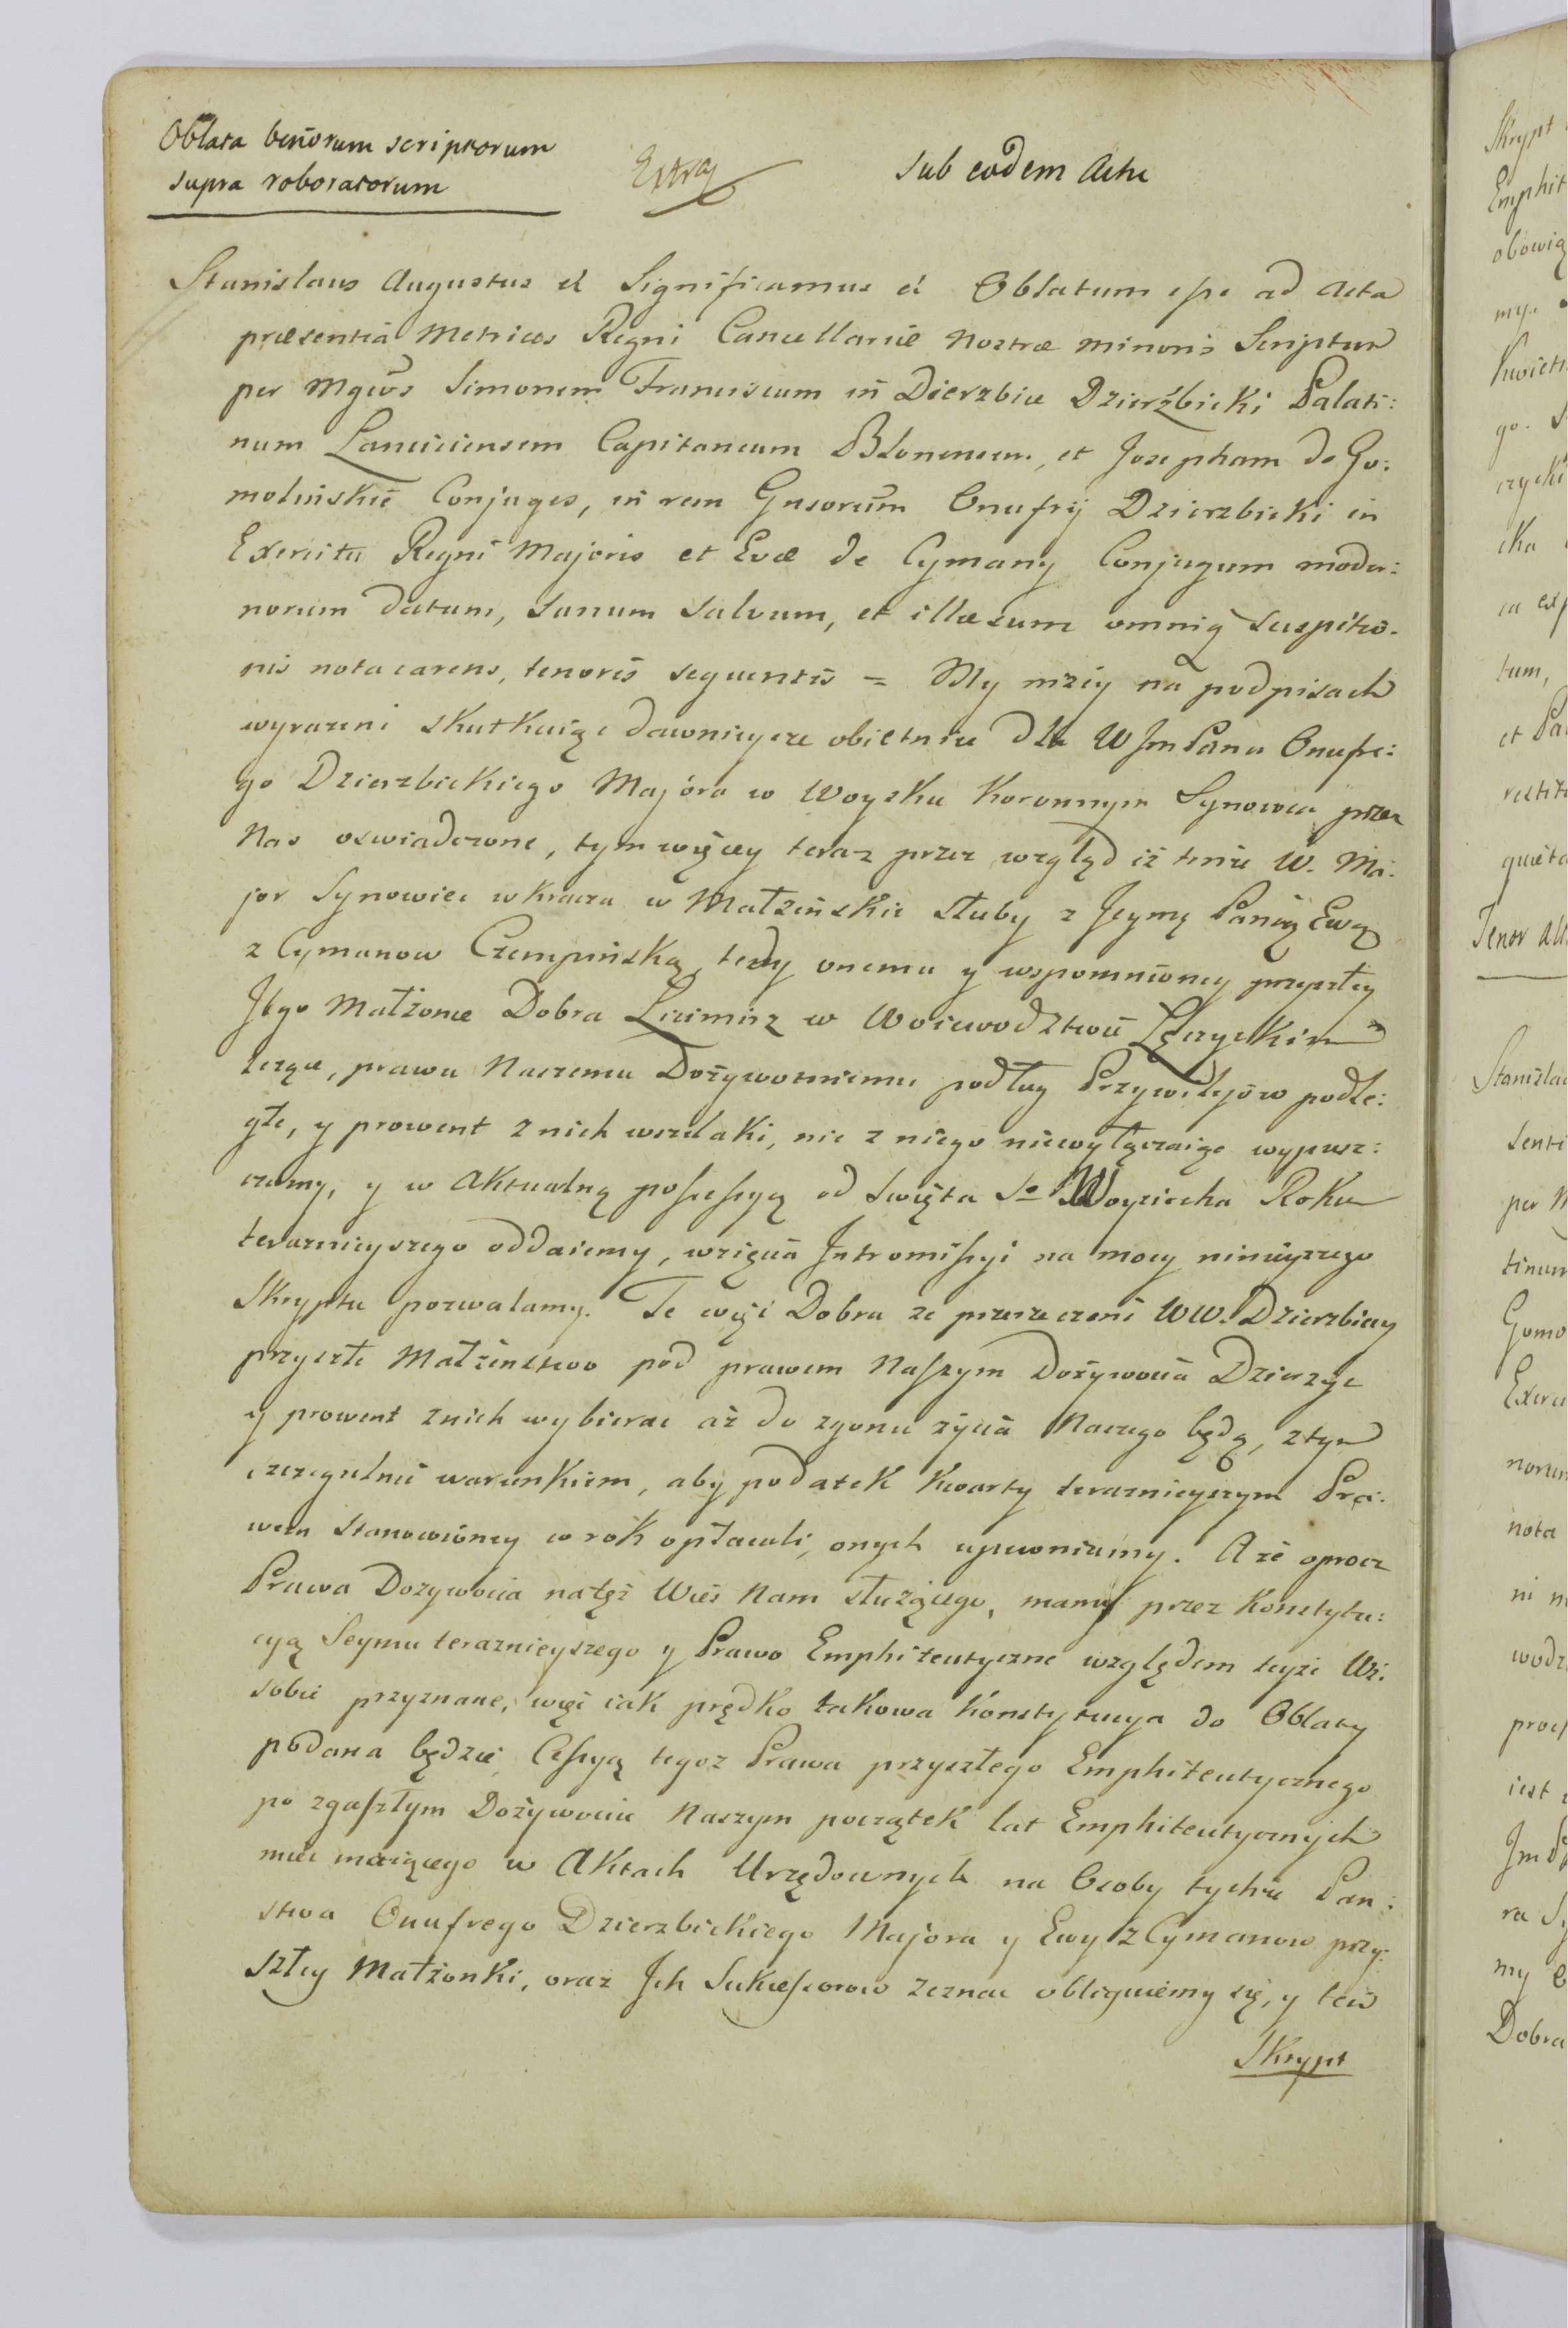 Oblata binorum scriptorum
supra roboratorum
Extra
sub eodem Actu
Stanislaus Augustus et Significamus et Oblatum esse ad Acta
præsentia Metrices Regni Cancellariæ Nostræ minoris Scriptum
per Mgcos Simonem Franciscum in Dierzbice Dzierzbicki Palati:
num Lanciciensem Capitaneum Blonensem, et Josepham de Go:
molinskie Conjuges, in rem Gnsorum Onufrij Dzierzbicki in
Exercitu Regni Majoris et Evæ de Cymany Conjugum moder:
norum datum, sanum salvum, et illæsum omniq suspitio-
nis nota carens, tenoris sequentis = My niżey na podpisach
wyrazeni skutkuiąc dawnieysze obietnice dla WJm Pana Onufre:
go Dzierzbickiego Majora w Woysku Koronnym Synowca przez
Nas oswiadczone, tym więcey teraz przez wzgląd iż tenże W. Ma:
jor Synowiec wkracza w Małżeńskie sluby z Jeymę Panią Ewą
z Cymanow Czempińską, tedy onemu y wspomnioney przyszłey
Jego Małżonce Dobra Licimirz w Woiewodztwie Łęczyckim
leżące, prawu Naszemu Dożywotniemu podług Przywilejów podle:
głe, y prowent z nich wszelaki, nic z niego niewyłączaiąc wypusz:
czamy, y w Aktualną possessyą od Swięta So Woyciecha Roku
teraznieyszego oddaiemy, wzięcia Intromissyi na mocy ninieyszego
Skryptu pozwalamy. Te więc Dobra ze przerzeczeni WW. Dzierzbiccy
przyszłe Małżeństwo pod prawem Naszym Dożywocia Dzierzyc
y prowent z nich wybierac aż do zgonu życia Naszego będą, z tym
szczegulnie warunkiem, aby podatek Kwarty teraznieyszym Pra:
wem stanowioney w rok opłacali, onych upewniamy. A że oprocz
Prawa Dozywocia natęż Wieś Nam służącego, mamy przez Konstytu:
cyą Seymu teraznieyszego y Prawo Emphiteutyczne względem teyże Wsi
sobie przyznane, więc iak prędko takowa Konstytucya do Oblaty
podana będzie, Cessyą tegoz Prawa przyszłego Emphiteutycznego
po zgasłym Dożywociu Naszym początek lat Emphiteutycznych
miec maiącego w Aktach Urzędownych na Osoby tychże Pan:
stwa Onufrego Dzierzbickiego Majora y Ewy z Cymanow przy:
szłey Małżonki, oraz Ich Sukcessorow zeznac obliguiemy się, y ten
Skrypt